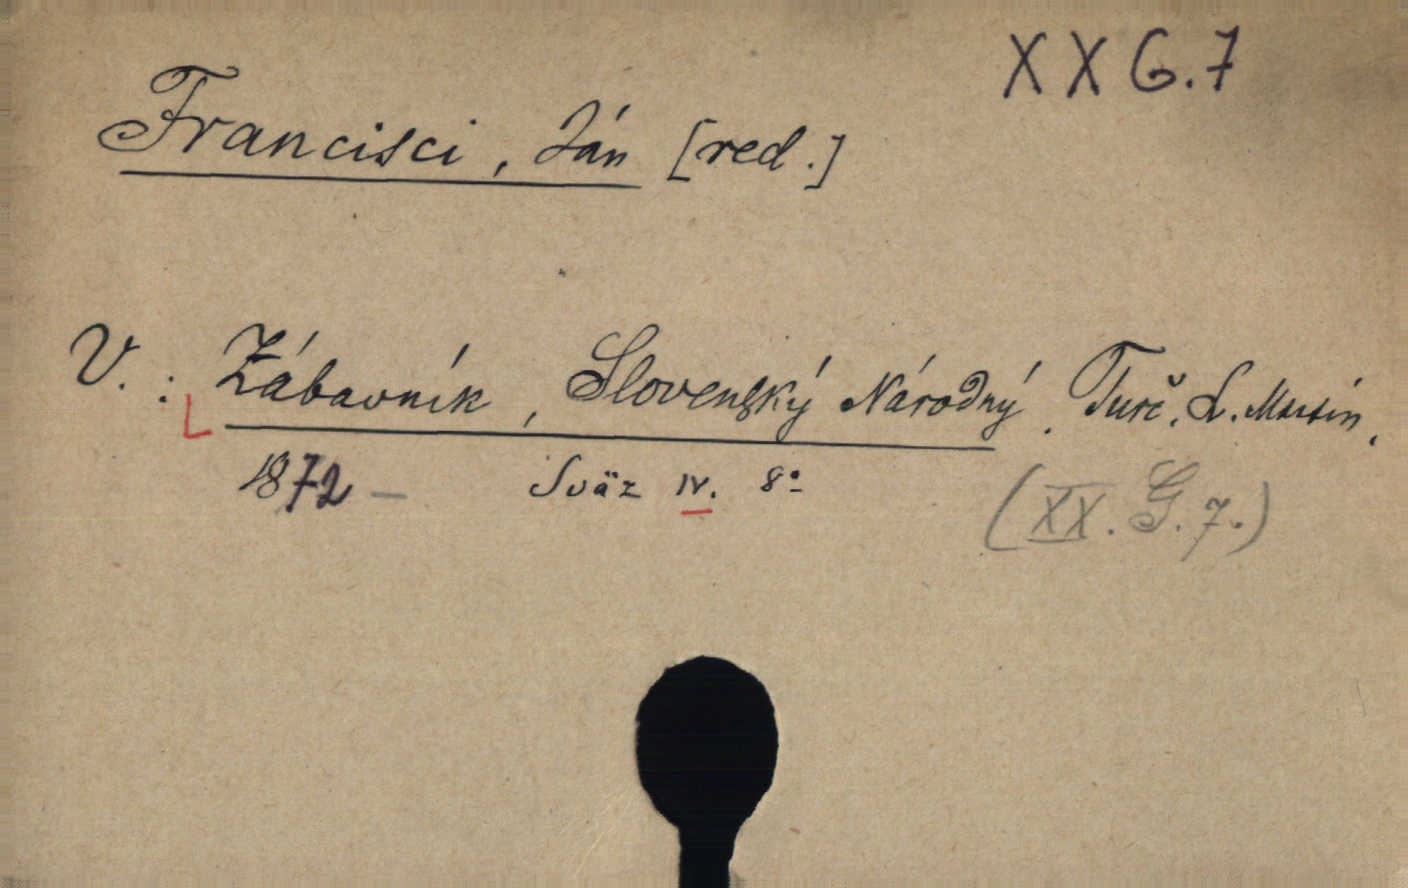 XX G.7
Francisci, Ján [red.]
V.: Zábavník, Slovenský Národný. Turč. S. Martin,
1872 – Sväz IV. 8°
(XX. G. 7.)